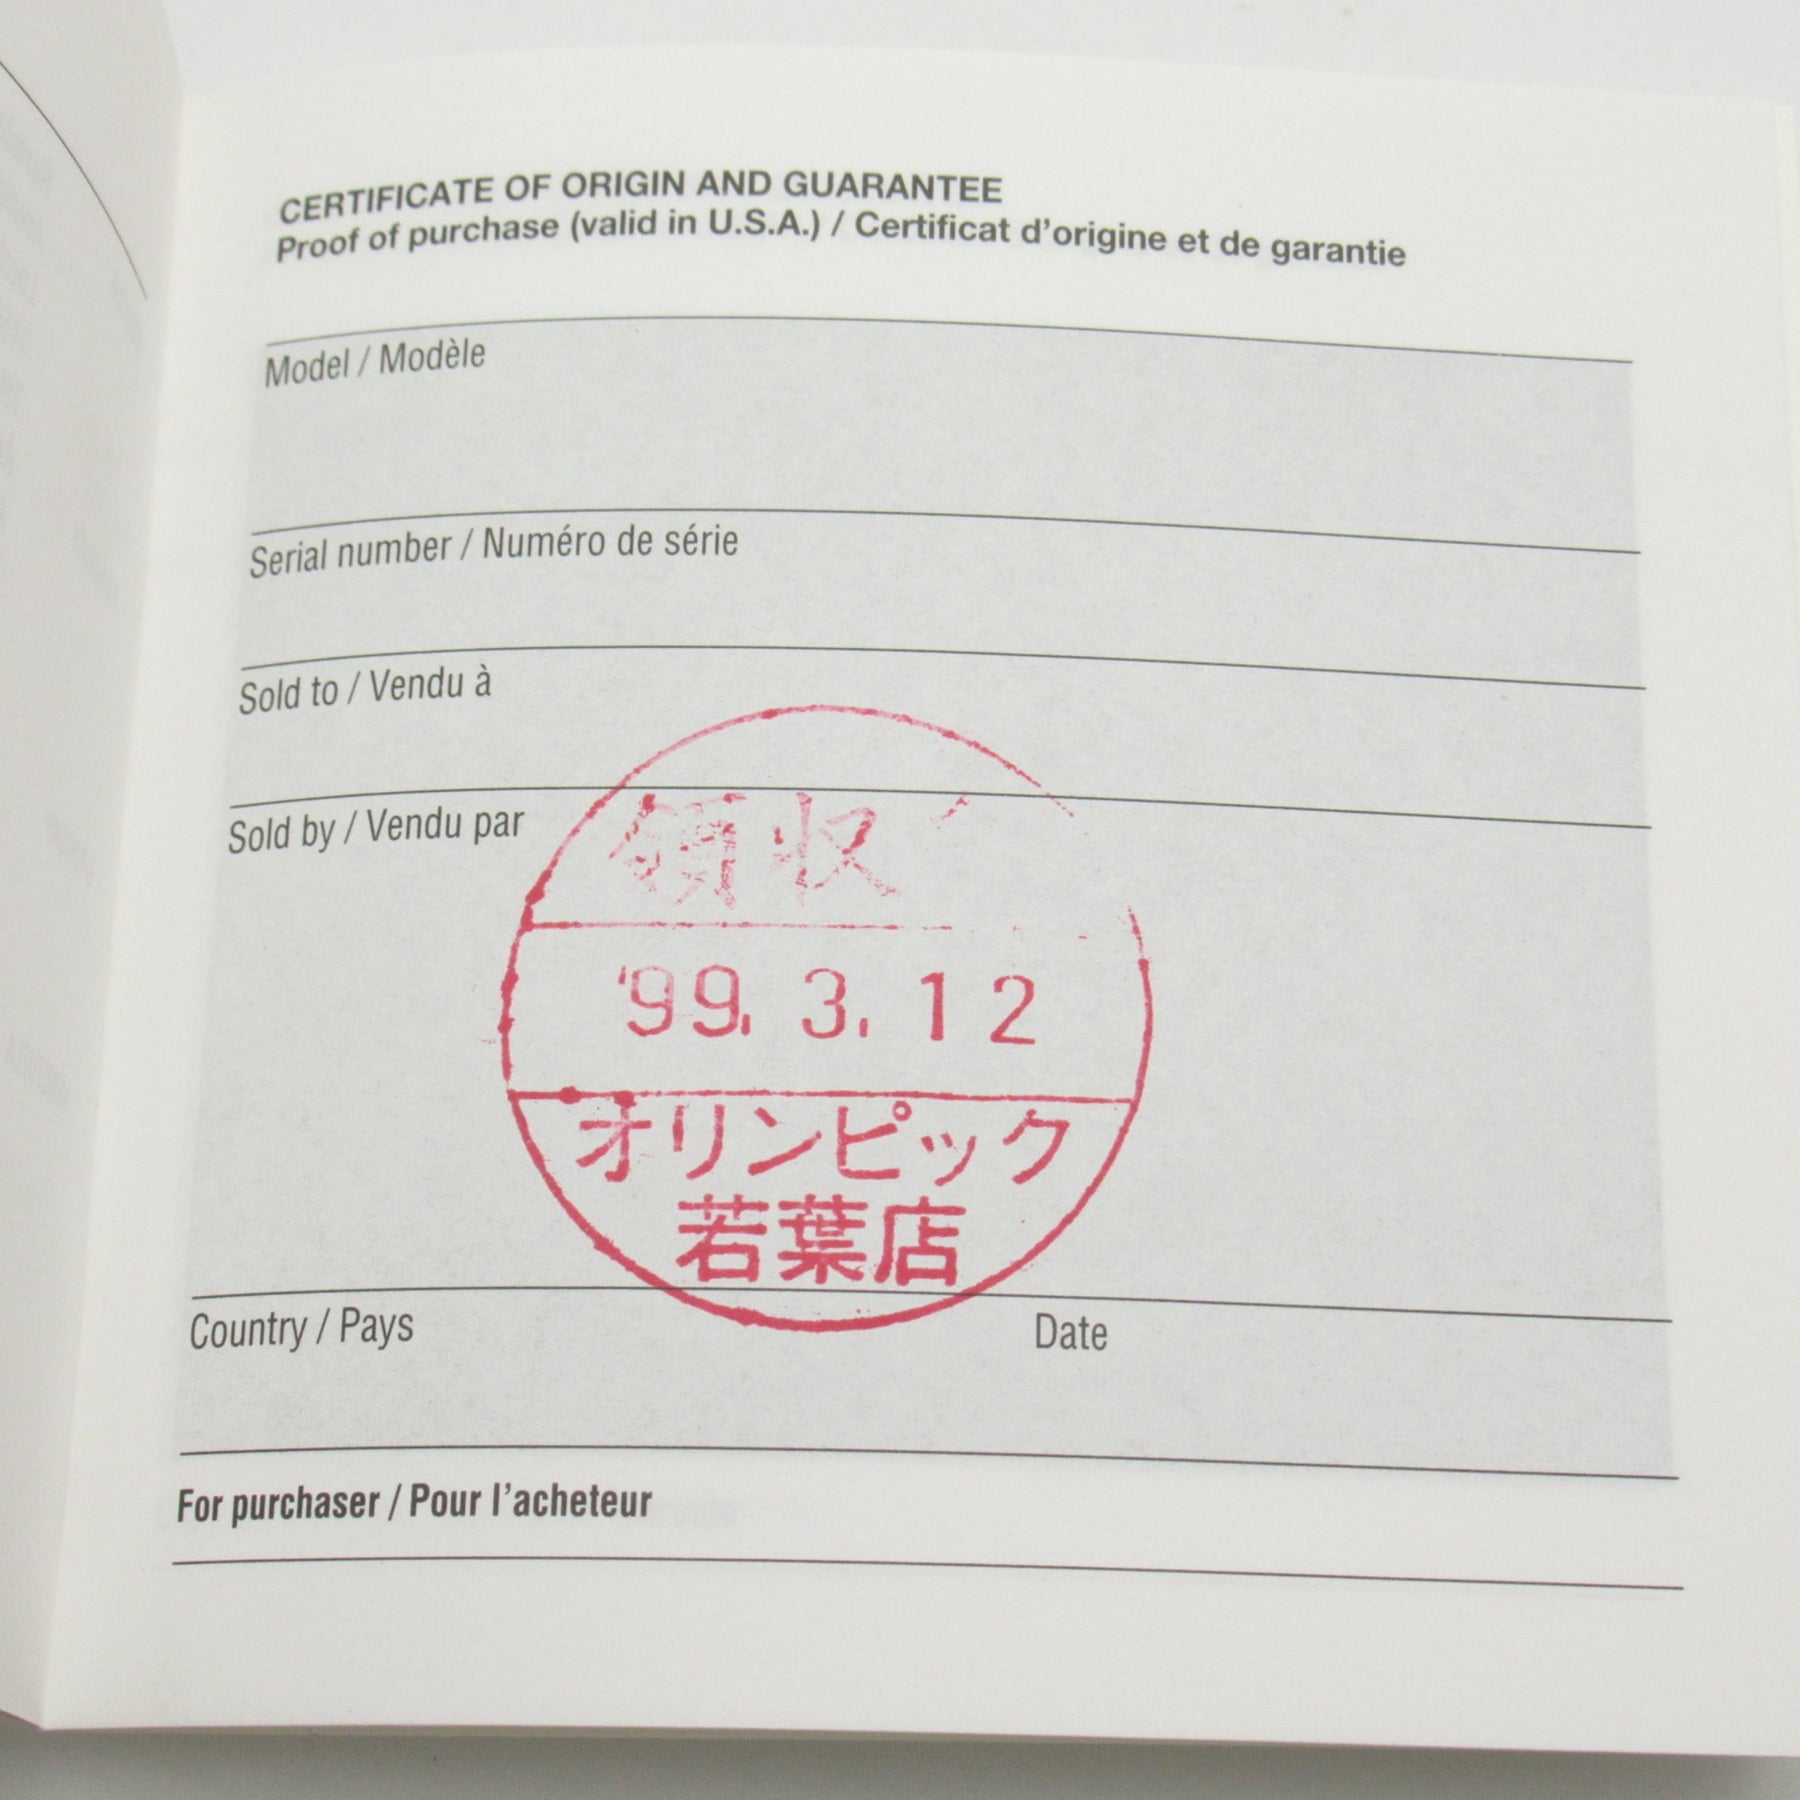 CERTIFICATE OF ORIGIN AND GUARANTEE
Proof of purchase (valid in U.S.A.) / Certificat d'origine et de garantie
Model / Modèle
Serial number / Numéro de série
Sold to / Vendu à
Sold by / Vendu par
領収
'99. 3. 12
オリンピック
若葉店
Country / Pays
Date
For purchaser / Pour l'acheteur